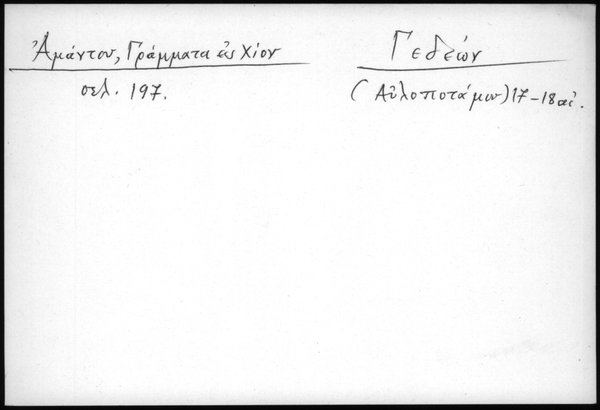 Ἀμάντου, Γράμματα εἰς Χίον
σελ. 197.
Γεδεών
(Αὐλοποτάμου) 17-18 αἰ.